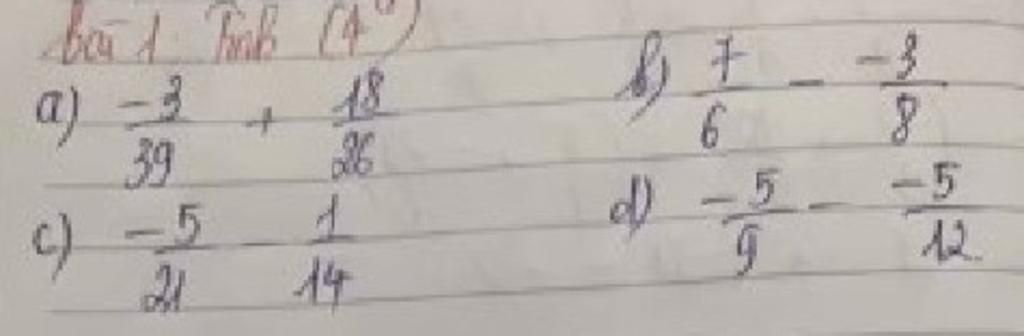 bài 1: Tính (4đ)
a) -3/39 + 18/26 b) 7/6 - -3/8
c) -5/21 - 1/14 d) -5/9 - -5/12